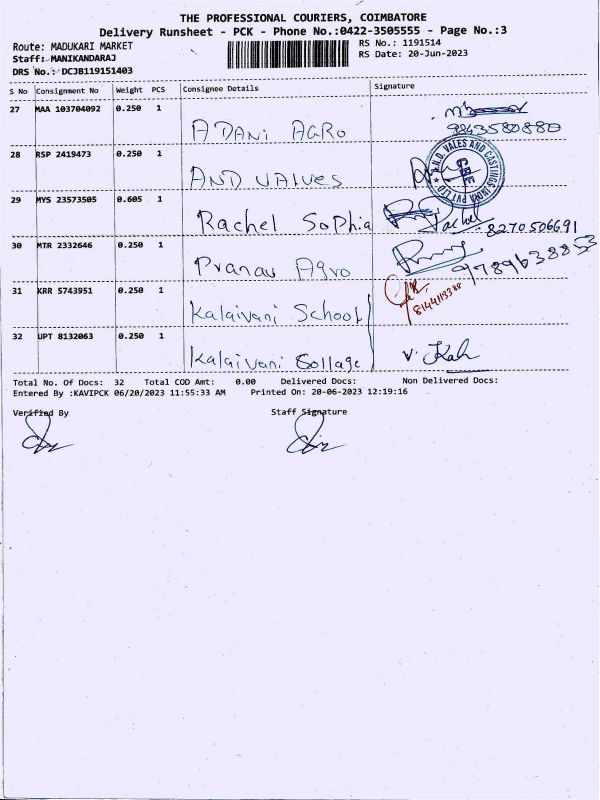 THE PROFESSIONAL COURIERS, COIMBATORE
Delivery Runsheet - PCK - Phone No.:0422-3505555 - Page No.:3
Route: MADUKARI MARKET
RS No.: 1191514
Staff: MANIKANDARAJ
RS Date: 20-Jun-2023
DRS No.: DCJB119151403
S No Consignment No Weight PCS Consignee Details Signature
27 MAA 103704092 0.250 1 ADANi AGRO
9843580880
28 RSP 2419473 0.250 1 AND VALVES
29 MYS 23573505 0.605 1 Rachel Sophia Rachel 8270506691
30 MTR 2332646 0.250 1 Pranav Agro 9789638853
31 KRR 5743951 0.250 1 Kalaivani School
32 UPT 8132063 0.250 1 Kalaivani Collage V. Kal
Total No. Of Docs: 32 Total COD Amt: 0.00 Delivered Docs: Non Delivered Docs:
Entered By :KAVIPCK 06/20/2023 11:55:33 AM Printed On: 20-06-2023 12:19:16
Verified By Staff Signature